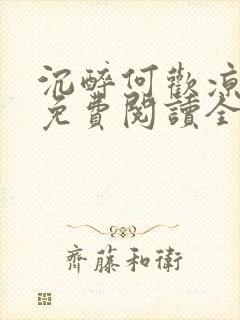 沉醉何歡涼
免費閱讀全
齊藤和衛